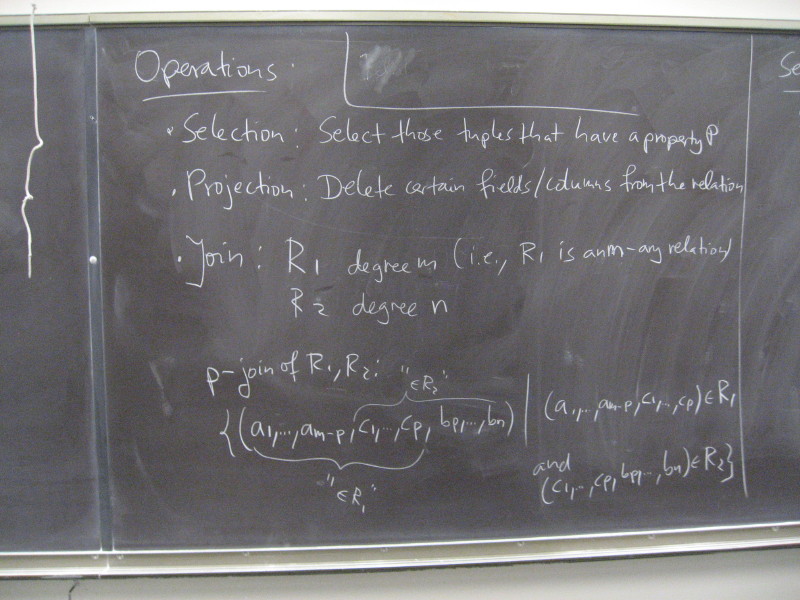 Operations:
• Selection: Select those tuples that have a property P
• Projection: Delete certain fields/columns from the relation
• Join: R1 degree m (i.e., R1 is an m-ary relation)
R2 degree n
p-join of R1, R2:
"∈R2"
{(a1,...,am-p,c1,...,cp,bp,...,bn) | (a1,...,am-p,c1,...,cp)∈R1
and
(c1,...,cp,bp,...,bn)∈R2}
"∈R1"
Se